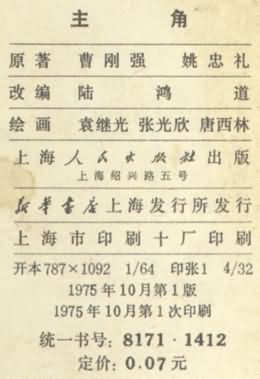 主 角
原著 曹刚强 姚忠礼
改编 陆鸿道
绘画 袁继光 张光欣 唐西林
上海人民出版社出版
上海绍兴路五号
新华书店上海发行所发行
上海市印刷十厂印刷
开本787×1092 1/64 印张1 4/32
1975年10月第1版
1975年10月第1次印刷
统一书号: 8171·1412
定价: 0.07元